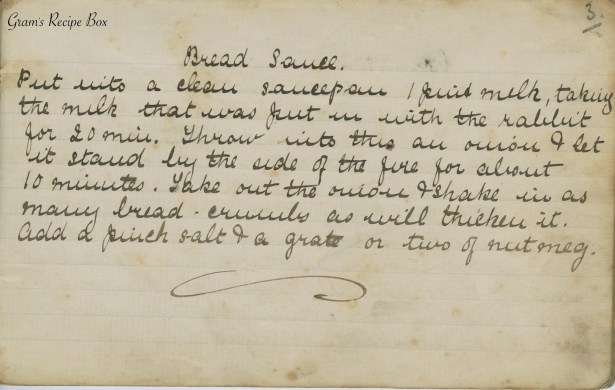 Gram's Recipe Box
3.
Bread Sauce.
Put into a clean saucepan 1 pint milk, taking
the milk that was put in with the rabbit
for 20 min. Throw into this an onion & let
it stand by the side of the fire for about
10 minutes. Take out the onion & shake in as
many bread-crumbs as will thicken it.
Add a pinch salt & a grate or two of nutmeg.